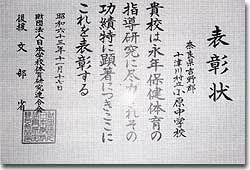 表彰状
奈良県吉野郡
十津川村立小原中学校
貴校は永年保健体育の
指導研究に尽力されその
功績特に顕著につきここに
これを表彰する
昭和六十三年十一月十七日
財団法人日本学校体育研究連合会
後援 文部省